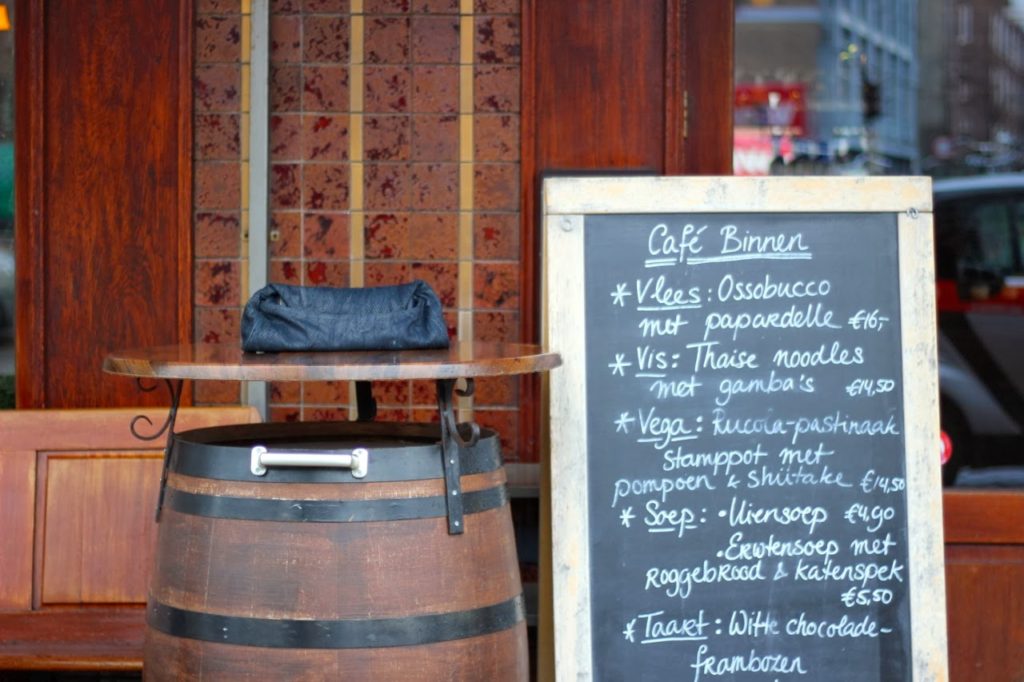 Café Binnen
* Vlees: Ossobucco
met papardelle €16,-
* Vis: Thaise noodles
met gamba's €14,50
* Vega: Rucola-pastinaak
stamppot met
pompoen & shiitake €14,50
* Soep: • Uiensoep €4,90
• Erwtensoep met
roggebrood & katenspek
€5,50
* Taart: Witte chocolade-
frambozen